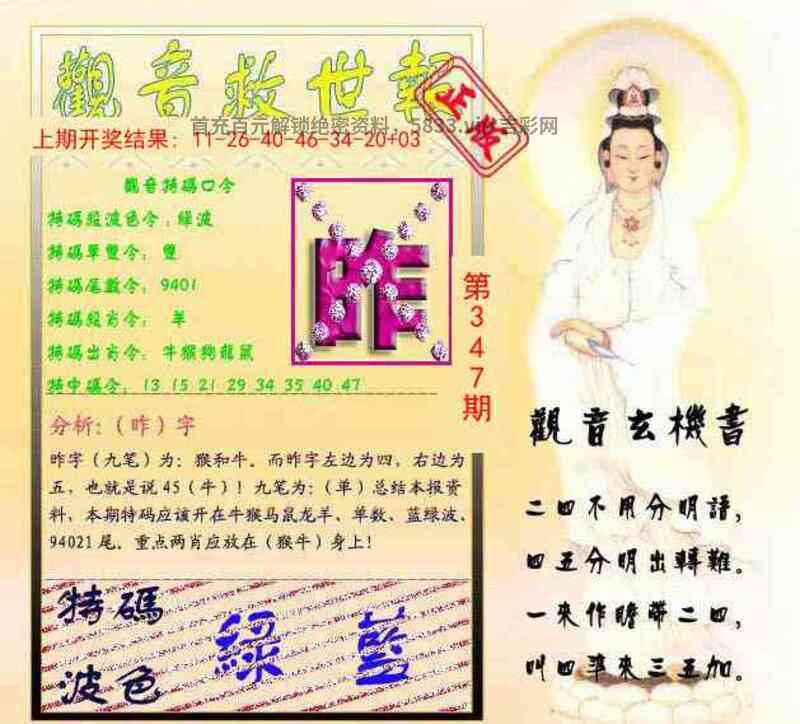 觀音救世報
正版
首充百元解锁绝密资料，5833.vip
彩网
上期开奖结果：11-26-40-46-34-20+03
觀音特碼口令
特碼經波色令：緑波
特碼單雙令：雙
特碼尾數令：9401
特碼殺肖令：羊
特碼出肖令：牛猴狗龍鼠
特中碼令：13 15 21 29 34 35 40 47
昨
第347期
分析：（昨）字
昨字（九笔）为：猴和牛。而昨字左边为四，右边为
五，也就是说45（牛）！九笔为：（单）总结本报资
料，本期特码应该开在牛猴马鼠龙羊、单数、蓝绿波、
94021尾。重点两肖应放在（猴牛）身上！
特碼
波色
綠 藍
觀音玄機書
二四不用分明語，
四五分明出轉難。
一來作瞻帶二四，
叫四準來三五加。